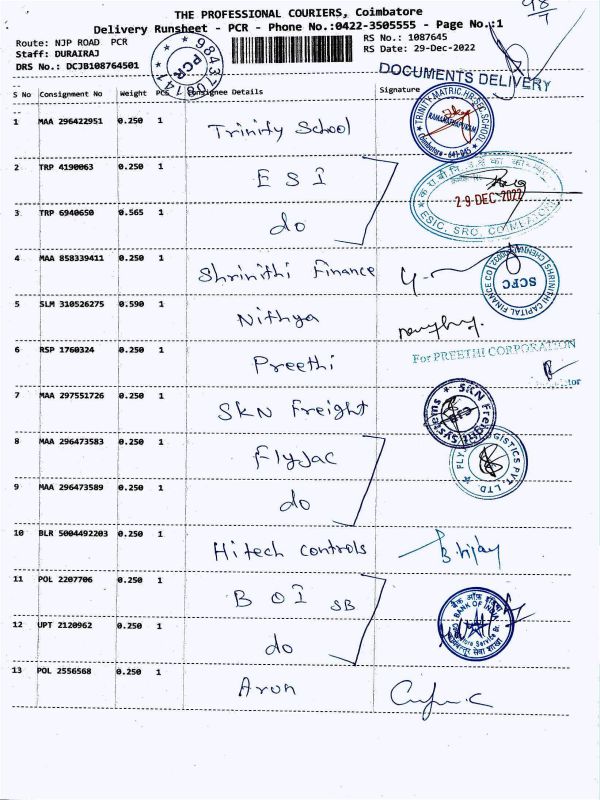 98/1
THE PROFESSIONAL COURIERS, Coimbatore
Delivery Runsheet - PCR - Phone No.:0422-3505555 - Page No.:1
Route: NJP ROAD PCR
RS No.: 1087645
Staff: DURAIRAJ
RS Date: 29-Dec-2022
DRS No.: DCJB108764501
PCR
DOCUMENTS DELIVERY
S No Consignment No Weight PCS Consignee Details Signature
1 MAA 296422951 0.250 1 Trinity School
TRINITY MATRIC.HR.SEC.SCHOOL
RAMANATHAPURAM
Coimbatore - 641 045
2 TRP 4190063 0.250 1 ESI
29 DEC 2022
ESIC, SRO, COIMBATORE
3 TRP 6940650 0.565 1 do
4 MAA 858339411 0.250 1 Shrinithi Finance
SHRINITHI CAPITAL FINANCE CO
SCFC
5 SLM 310526275 0.590 1 Nithya
6 RSP 1760324 0.250 1 Preethi
For PREETHI CORPORATION
7 MAA 297551726 0.250 1 SKN Freight
SKN Freight Systems
CJB
8 MAA 296473583 0.250 1 FlyJac
FLYJAC LOGISTICS PVT. LTD.
9 MAA 296473589 0.250 1 do
10 BLR 5004492203 0.250 1 Hitech controls
B. Vijay
11 POL 2207706 0.250 1 BOI SB
बैंक ऑफ़ इंडिया
BANK OF INDIA
12 UPT 2120962 0.250 1 do
13 POL 2556568 0.250 1 Arun